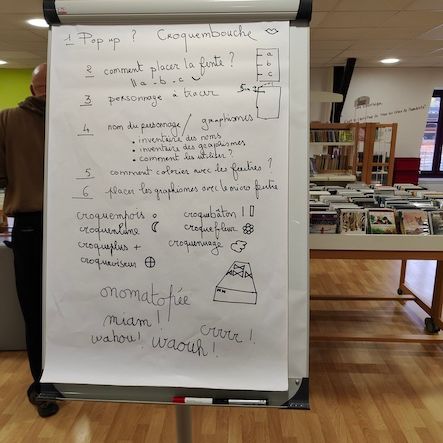 1 Pop up ? Croquembouche
2 comment placer la fente ?
// a - b - c
a
b
c
3 personnage à tracer
5 cm
4 nom du personnage / graphismes
• inventaire des noms
• inventaire des graphismes
• comment les utiliser ?
5 comment colorier avec les feutres ?
6 placer les graphismes avec la micro feutre
croquemnois croquebâton
croquenlune croquefleur
croqueplus + croquenuage
croqueviseur
onomatopiée
miam !
wahou ! waouh ! crrrr !